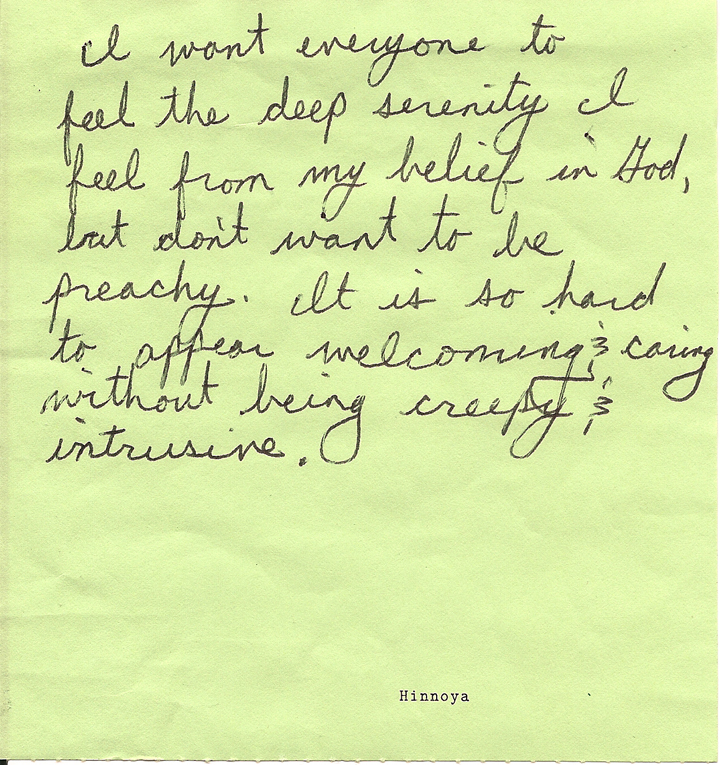 I want everyone to
feel the deep serenity I
feel from my belief in God,
but don't want to be
preachy. It is so hard
to appear welcoming & caring
without being creepy &
intrusive.
Hinnoya